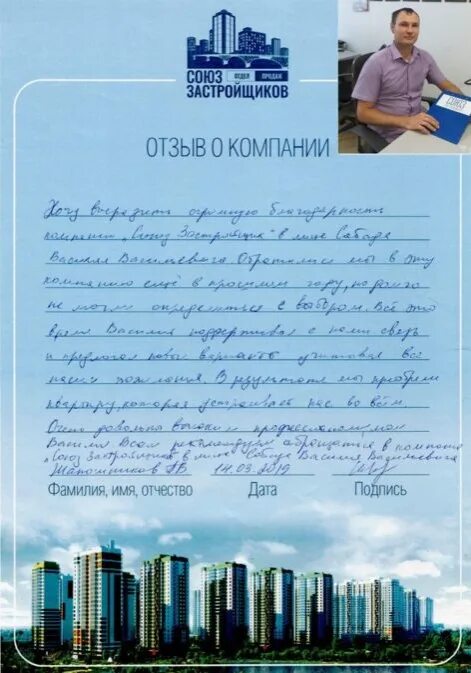 СОЮЗ
ОТДЕЛ ПРОДАЖ
ЗАСТРОЙЩИКОВ
СОЮЗ
ОТЗЫВ О КОМПАНИИ
Хочу выразить огромную благодарность
компании "Союз Застройщиков" в лице Сабаде
Василия Васильевича. Обратились мы в эту
компанию ещё в прошлом году, но долго
не могли определиться с выбором. Всё это
время Василий поддерживал с нами связь
и предлагал новые варианты учитывая все
наши пожелания. В результате мы приобрели
квартиру, которая устраивает нас во всём.
Очень довольны и профессионализмом
Василия Всем рекомендуем обращаться в компанию
"Союз Застройщиков в лице Сабаде Василия Васильевича
14.03.2019
Фамилия, имя, отчество Дата Подпись